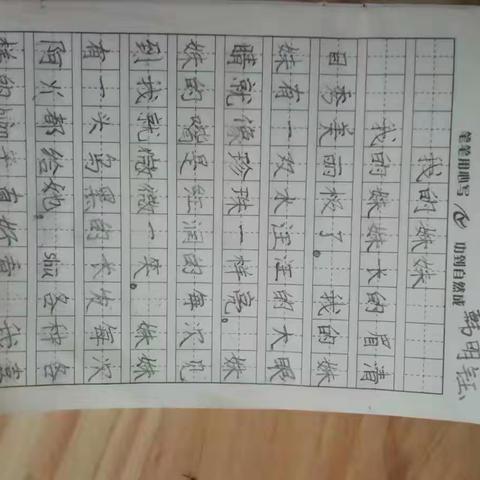 笔笔用心写 功到自然成
明钰
我的妹妹
我的妹妹长的眉清
目秀美丽极了。我的妹
妹有一双水汪汪的大眼
睛就像珍珠一样亮。妹
妹的嘴是红润的每次见
到我就微微一笑。妹妹
有一头乌黑的长发每次
都给她。shu各种各
样的bian子真好看 我喜